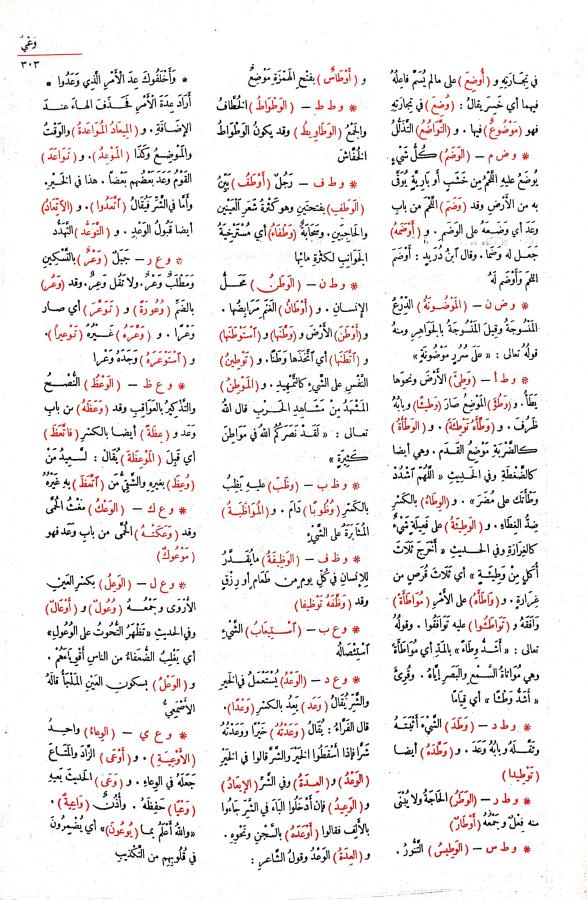 وَعَى
٣٠٣
في تِجَارَتِهِ و (أُوضِعَ) على مالم يُسَمَّ فاعِلُهُ
فيهما أي خَسِرَ يقالُ : (وُضِعَ) في تِجَارَتِهِ
فهو (مَوْضُوعٌ) فيها . و (التَّوَاضُعُ) التَّذَلُّلُ
* و ض م – (الوَضَمُ) كُلُّ شَيْءٍ
يُوضَعُ عليه اللَّحْمُ من خَشَبٍ أو بَارِيَةٍ يُوقَى
به من الأَرْضِ وقد (وَضَمَ) اللَّحْمَ من باب
وَعَدَ أي وَضَعَهُ على الوَضَمِ . و (أَوْضَمَهُ)
جَعَل له وَضَمًا . وقال ابنُ دُرَيدٍ : أَوْضَمَ
اللَّحْمَ وأَوْضَمَ لَهُ
* و ض ن – (المَوْضُونَةُ) الدِّرْعُ
المَنْسُوجَةُ وقيلَ المَنْسُوجَةُ بالجَوَاهِرِ ومنهُ
قولُهُ تعالى : « على سُرُرٍ مَوْضُونَةٍ »
* و ط أ – (وَطِئَ) الأَرْضَ ونحوَها
يَطَأُ . و (وَطُؤَ) المَوْضِعُ صَارَ (وَطِيئًا) وبابُهُ
ظَرُفَ . و (وَطَّأَهُ تَوْطِئَةً) . و (الوَطْأَةُ)
كالضَّرْبَةِ مَوْضِعُ القَدَمِ . وهي أيضا
كالضَّغْطَةِ وفي الحديثِ « اللَّهُمَّ اشْدُدْ
وَطْأَتَكَ على مُضَرَ » . و (الوِطَاءُ) بالكَسْرِ
ضِدُّ الغِطَاءِ . و (الوَطِيئَةُ) على فَعِيلَةٍ شَيْءٌ
كالغِرَارَةِ وفي الحديثِ « أَخْرَجَ ثَلَاثَ
أُكَلٍ مِنْ وَطِيئَةٍ » أي ثَلَاثَ قُرَصٍ من
غِرَارَةٍ . و (وَاطَأَهُ) على الأَمْرِ (مُوَاطَأَةً)
وَافَقَهُ و (تَوَاطَئُوا) عليه تَوَافَقُوا . وقولُهُ
تعالى : « أَشَدُّ وِطَاءً » بالمَدِّ أي مُوَاطَأَةً
وهي مُوَاتَاةُ السَّمْعِ والبَصَرِ إيَّاهُ . وقُرِئَ
« أَشَدُّ وَطْئًا » أي قِيَامًا
* و ط د – (وَطَدَ) الشَّيْءَ أَثْبَتَهُ
وثَقَّلَهُ وبابُهُ وَعَدَ . و (وَطَّدَهُ) أيضا
(تَوْطِيدا)
* و ط ر – (الوَطَرُ) الحَاجَةُ ولا يُبْنَى
منه فِعْلٌ وجَمْعُهُ (أَوْطَارٌ)
* و ط س – (الوَطِيسُ) التَّنُّورُ .
و (أَوْطَاسٌ) بفتحِ الهَمْزَةِ مَوْضِعٌ
* و ط ط – (الوَطْوَاطُ) الخُطَّافُ
والجَمْعُ (الوَطَاوِيطُ) وقد يكونُ الوَطْوَاطُ
الخُفَّاشَ
* و ط ف – رَجُلٌ (أَوْطَفُ) بَيِّنُ
(الوَطَفِ) بفتحتينِ وهو كَثْرَةُ شَعَرِ العَيْنَينِ
والحاجِبَينِ . وسَحَابَةٌ (وَطْفَاءُ) أي مُسْتَرْخِيَةُ
الجَوَانِبِ لكَثْرَةِ مائها
* و ط ن – (الوَطَنُ) مَحَلُّ
الإِنسانِ . و (أَوْطَانُ) الغَنَمِ مَرَابِضُها .
و (أَوْطَنَ) الأَرْضَ و (وَطَّنَها) و (اسْتَوْطَنَها)
و (اتَّطَنَها) أي اتَّخَذَها وَطَنًا . و (تَوْطِينُ)
النَّفْسِ على الشَّيْءِ كالتَّمْهِيدِ . و (المَوْطِنُ)
المَشْهَدُ مِنْ مَشَاهِدِ الحَرْبِ قال اللهُ
تعالى : « لَقَدْ نَصَرَكُمُ اللهُ في مَوَاطِنَ
كَثِيرَةٍ »
* و ظ ب – (وَظَبَ) عليه يَظِبُ
بالكَسْرِ (وُظُوبًا) دَامَ . و (المُوَاظَبَةُ)
المُثَابَرَةُ على الشَّيْءِ
* و ظ ف – (الوَظِيفَةُ) مايُقَدَّرُ
للإنسانِ في كُلِّ يومٍ مِن طَعَامٍ أو رِزْقٍ
وقد (وَظَّفَهُ تَوْظِيفا)
* و ع ب – (اسْتِيعَابُ) الشَّيْءِ
اسْتِئْصَالُهُ
* و ع د – (الوَعْدُ) يُسْتَعْمَلُ في الخَيْرِ
والشَّرِّ يُقَالُ (وَعَد) يَعِدُ بالكسرِ (وَعْدًا) .
قال الفَرَّاءُ : يُقَالُ (وَعَدْتُهُ) خَيْرًا ووَعَدْتُهُ
شَرًّا فإذا أَسْقَطُوا الخَيْرَ والشَّرَّ قالوا في الخَيْرِ
(الوَعْدُ) و (العِدَةُ) وفي الشَّرِّ (الإِيعَادُ)
و (الوَعِيدُ) فإن أَدْخَلُوا الباءَ في الشَّرِّ جَاءُوا
بالأَلِفِ فقالوا (أَوْعَدَهُ) بالسِّجْنِ ونَحْوِهِ .
و (العِدَةُ) الوَعْدُ وقَولُ الشَّاعِرِ :
* وأَخْلَفُوكَ عِدَ الأَمْرِ الَّذي وَعَدُوا *
أَرَادَ عِدَةَ الأَمْرِ فَحَذَفَ الهاءَ عند
الإِضَافَةِ . و (المِيعَادُ المُوَاعَدَةُ) والوَقْتُ
والمَوْضِعُ وكَذَا (المَوْعِدُ) . و (تَوَاعَدَ)
القَوْمُ وَعَدَ بَعْضُهم بَعْضًا . هذا في الخَيْرِ .
وأَمَّا في الشَّرِّ فيُقَالُ (اتَّعَدُوا) . و (الاِتِّعَادُ)
أيضا قَبُولُ الوَعْدِ . و (التَّوَعُّدُ) التَّهَدُّدُ
* و ع ر – جَبَلٌ (وَعْرٌ) بالتَّسْكِينِ
ومَطْلَبٌ وَعْرٌ . ولا تَقُلْ وَعِرٌ . وقد (وَعُرَ)
بالضَّمِّ (وُعُورَةً) و (تَوَعَّرَ) أي صار
وَعْرًا . و (وَعَّرَهُ) غَيْرُهُ (تَوْعِيرًا) .
و (اسْتَوْعَرَهُ) وَجَدَهُ وَعْرا
* و ع ظ – (الوَعْظُ) النُّصْحُ
والتَّذْكِيرُ بالعَوَاقِبِ وقد (وَعَظَهُ) من باب
وَعَدَ و (عِظَةً) أيضا بالكسْرِ (فاتَّعَظَ)
أي قَبِلَ (المَوْعِظَةَ) يُقالُ : السَّعِيدُ مَنْ
(وُعِظَ) بغيرِهِ والشَّقِيُّ مَنِ (اتَّعَظَ) به غَيْرُهُ
* و ع ك – (الوَعْكُ) مَغْثُ الحُمَّى
وقد (وَعَكَتْهُ) الحُمَّى من بابِ وَعَدَ فهو
(مَوْعُوكٌ)
* و ع ل – (الوَعِلُ) بكسرِ العَينِ
الأَرْوَى وجَمْعُهُ (وُعُولٌ) و (أَوْعَالٌ)
وفي الحديثِ «تَظْهَرُ التُّحُوتُ على الوُعُولِ»
أي يَغْلِبُ الضُّعَفَاءُ من الناسِ أَقْوِيَاءَهُمْ .
و (الوَعْلُ) بسكونِ العَيْنِ المَلْجَأُ قالَهُ
الأَصْمَعِيُّ
* و ع ي – (الوِعَاءُ) واحِدُ
(الأَوْعِيَةِ) . و (أَوْعَى) الزَّادَ والمَتَاعَ
جَعَلَهُ في الوِعاءِ . و (وَعَى) الحديثَ يَعِيهِ
(وَعْيًا) حَفِظَهُ . وأُذُنٌ (وَاعِيَةٌ) .
«واللهُ أَعْلَمُ بما (يُوعُونَ)» أي يُضْمِرُونَ
في قُلُوبِهِم من التَّكْذِيبِ